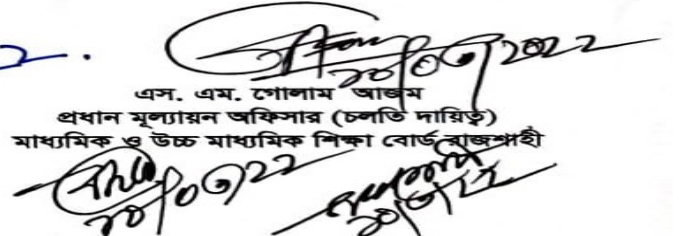 ২.
২০/০৩/২০২২
এস. এম. গোলাম আজম
প্রধান মূল্যায়ন অফিসার (চলতি দায়িত্ব)
মাধ্যমিক ও উচ্চ মাধ্যমিক শিক্ষা বোর্ড রাজশাহী
২০/০৩/২২
২০/৩/২২